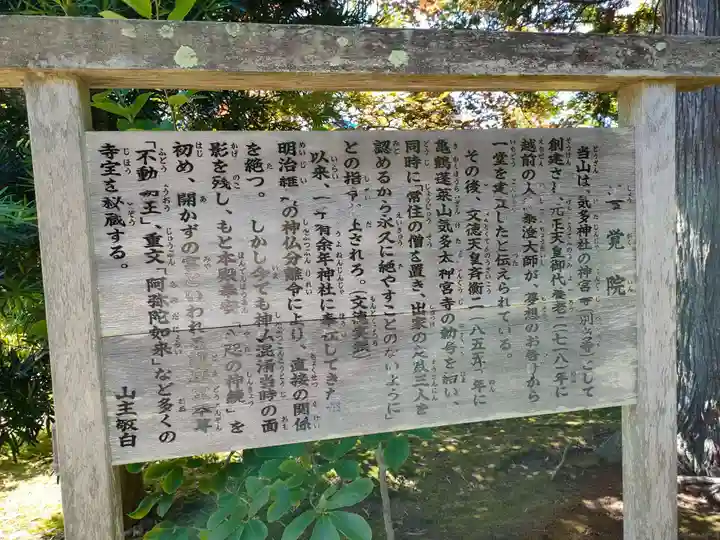 覚院
当山は、気多神社の神宮寺(別当寺)として
創建され、元正天皇御代養老二(七一八)年に
越前の人、泰澄大師が、夢想のお告げから
一堂を建立したと伝えられている。
その後、文徳天皇斉衡二(八五五)年に
亀鶴蓬莱山気多太神宮寺の勅号を給い、
同時に「常住の僧を置き、出家の 三人を
認めるから永久に絶やすことのないように」
との指令 上される。(文徳実録)
以来、一千有余年神社に奉仕してきた
明治維 の神仏分離令により、直接の関係
を絶つ。 しかし今でも神仏混淆当時の面
影を残し、もと本殿奉安 の神様」を
初め、開かずの宮といわれる 年
「不動明王」、重文「阿弥陀如来」など多くの
寺宝を秘蔵する。
山主敬白